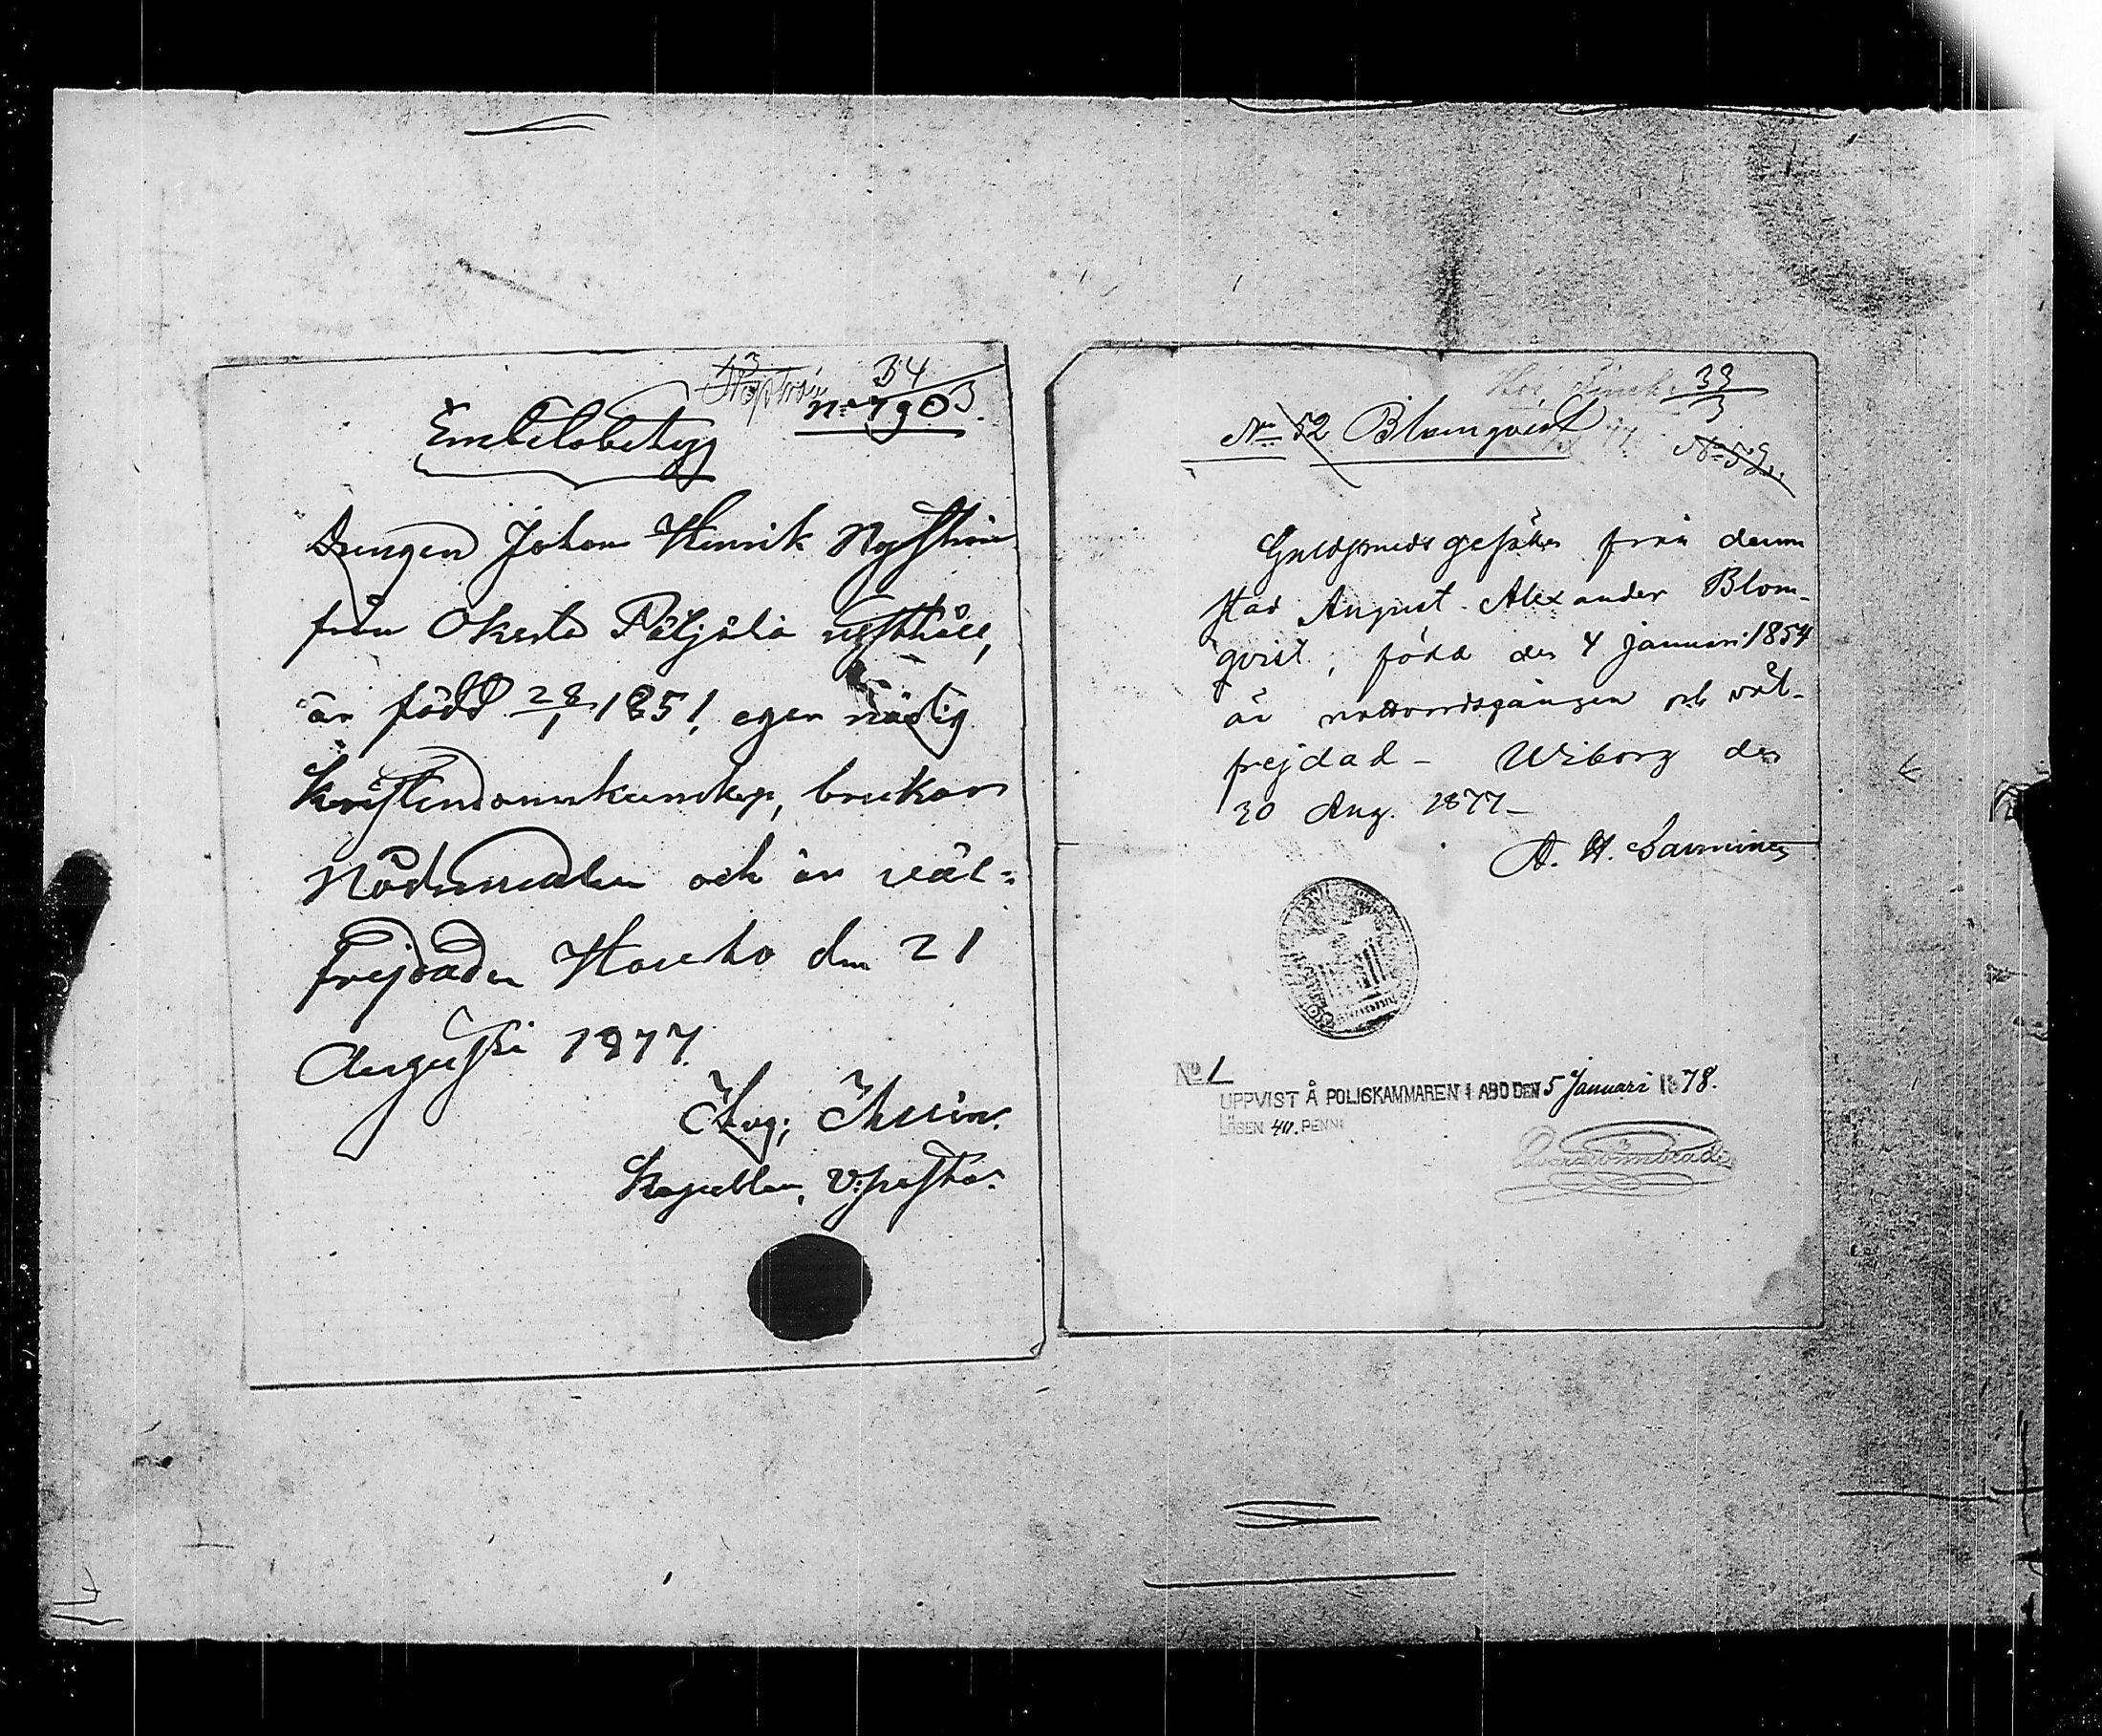 34
3
No 790
Embetsbetyg
Drengen Johan Henrik Nyström
från Okerla Päljälä rusthåll,
är född 28/1 1851, eger nödig
Kristendomskunskap, brukar
Nådemedlen och är väl-
frejdad. Hauho den 21
Augusti 1877.
Kapellan, V. pastor.
33
3
No 52 Blomqvist
No 52.
Guldsmedsgesällen från denna
stad August Alexander Blom-
qvist, född den 4 Januari 1854
är nattvardsgången och väl-
frejdad – Wiborg den
30 Aug. 1877 –
No 1
UPPVIST Å POLISKAMMAREN I ABO DEN 5 Januari 1878.
LÖSEN 40. PENNI